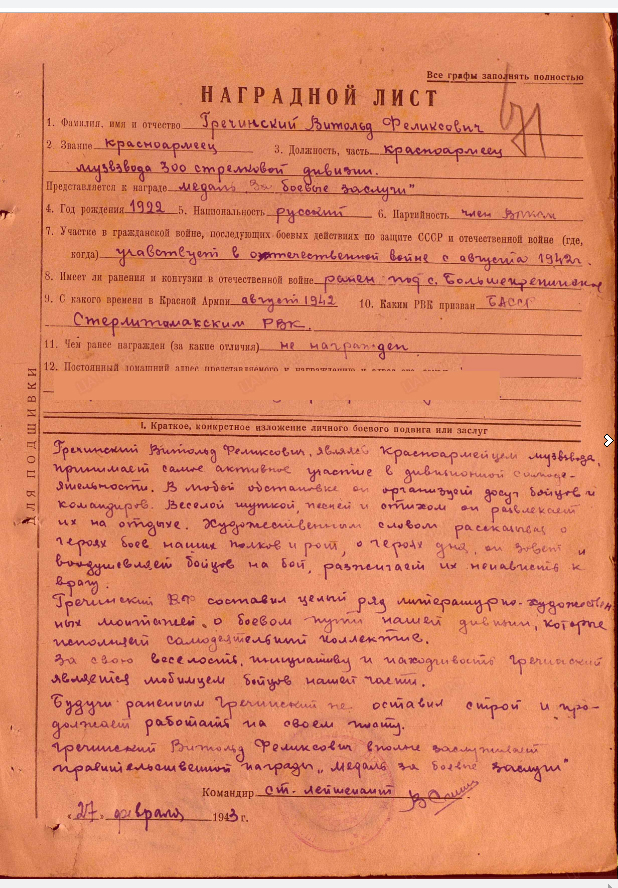 Все графы заполнять полностью
НАГРАДНОЙ ЛИСТ
671
1. Фамилия, имя и отчество Гречинский Витольд Феликсович
2. Звание красноармеец 3. Должность, часть красноармеец
музвзвода 300 стрелковой дивизии.
Представляется к награде медаль „За боевые заслуги"
4. Год рождения 1922 5. Национальность русский 6. Партийность член ВЛКСМ
7. Участие в гражданской войне, последующих боевых действиях по защите СССР и отечественной войне (где,
когда) учавствует в отечественной войне с августа 1942г.
8. Имеет ли ранения и контузии в отечественной войне ранен под с.
9. С какого времени в Красной Армии август 1942 10. Каким РВК призван БАССР
Стерлитамакским РВК.
11. Чем ранее награжден (за какие отличия) не награжден
12. Постоянный домашний адрес представляемого к награждению и адрес его
ДЛЯ ПОДШИВКИ
I. Краткое, конкретное изложение личного боевого подвига или заслуг
Гречинский Витольд Феликсович, являясь красноармейцем музвзвода,
принимает самое активное участие в дивизионной самоде-
ятельности. В любой обстановке он организует досуг бойцов и
командиров. Веселой шуткой, песней и стихом он развлекает
их на отдыхе. Художественным словом рассказывая о
героях боев наших полков и рот, о героях дня, он зовет и
воодушевляет бойцов на бой, разжигает их ненависть к
врагу.
Гречинский ВФ составил целый ряд литературно-художествен
ных монтажей „о боевом пути нашей дивизии, которые
исполняет самодеятельный коллектив.
За свою веселость, инициативу и находчивость Гречинский
является любимцем бойцов нашей части.
Будучи раненным Гречинский не оставил строй и про-
должает работать на своем посту.
Гречинский Витольд Феликсович вполне заслуживает
правительственной награды „Медаль за боевые заслуги"
Командир ст. лейтенант
„27" февраля 1943 г.